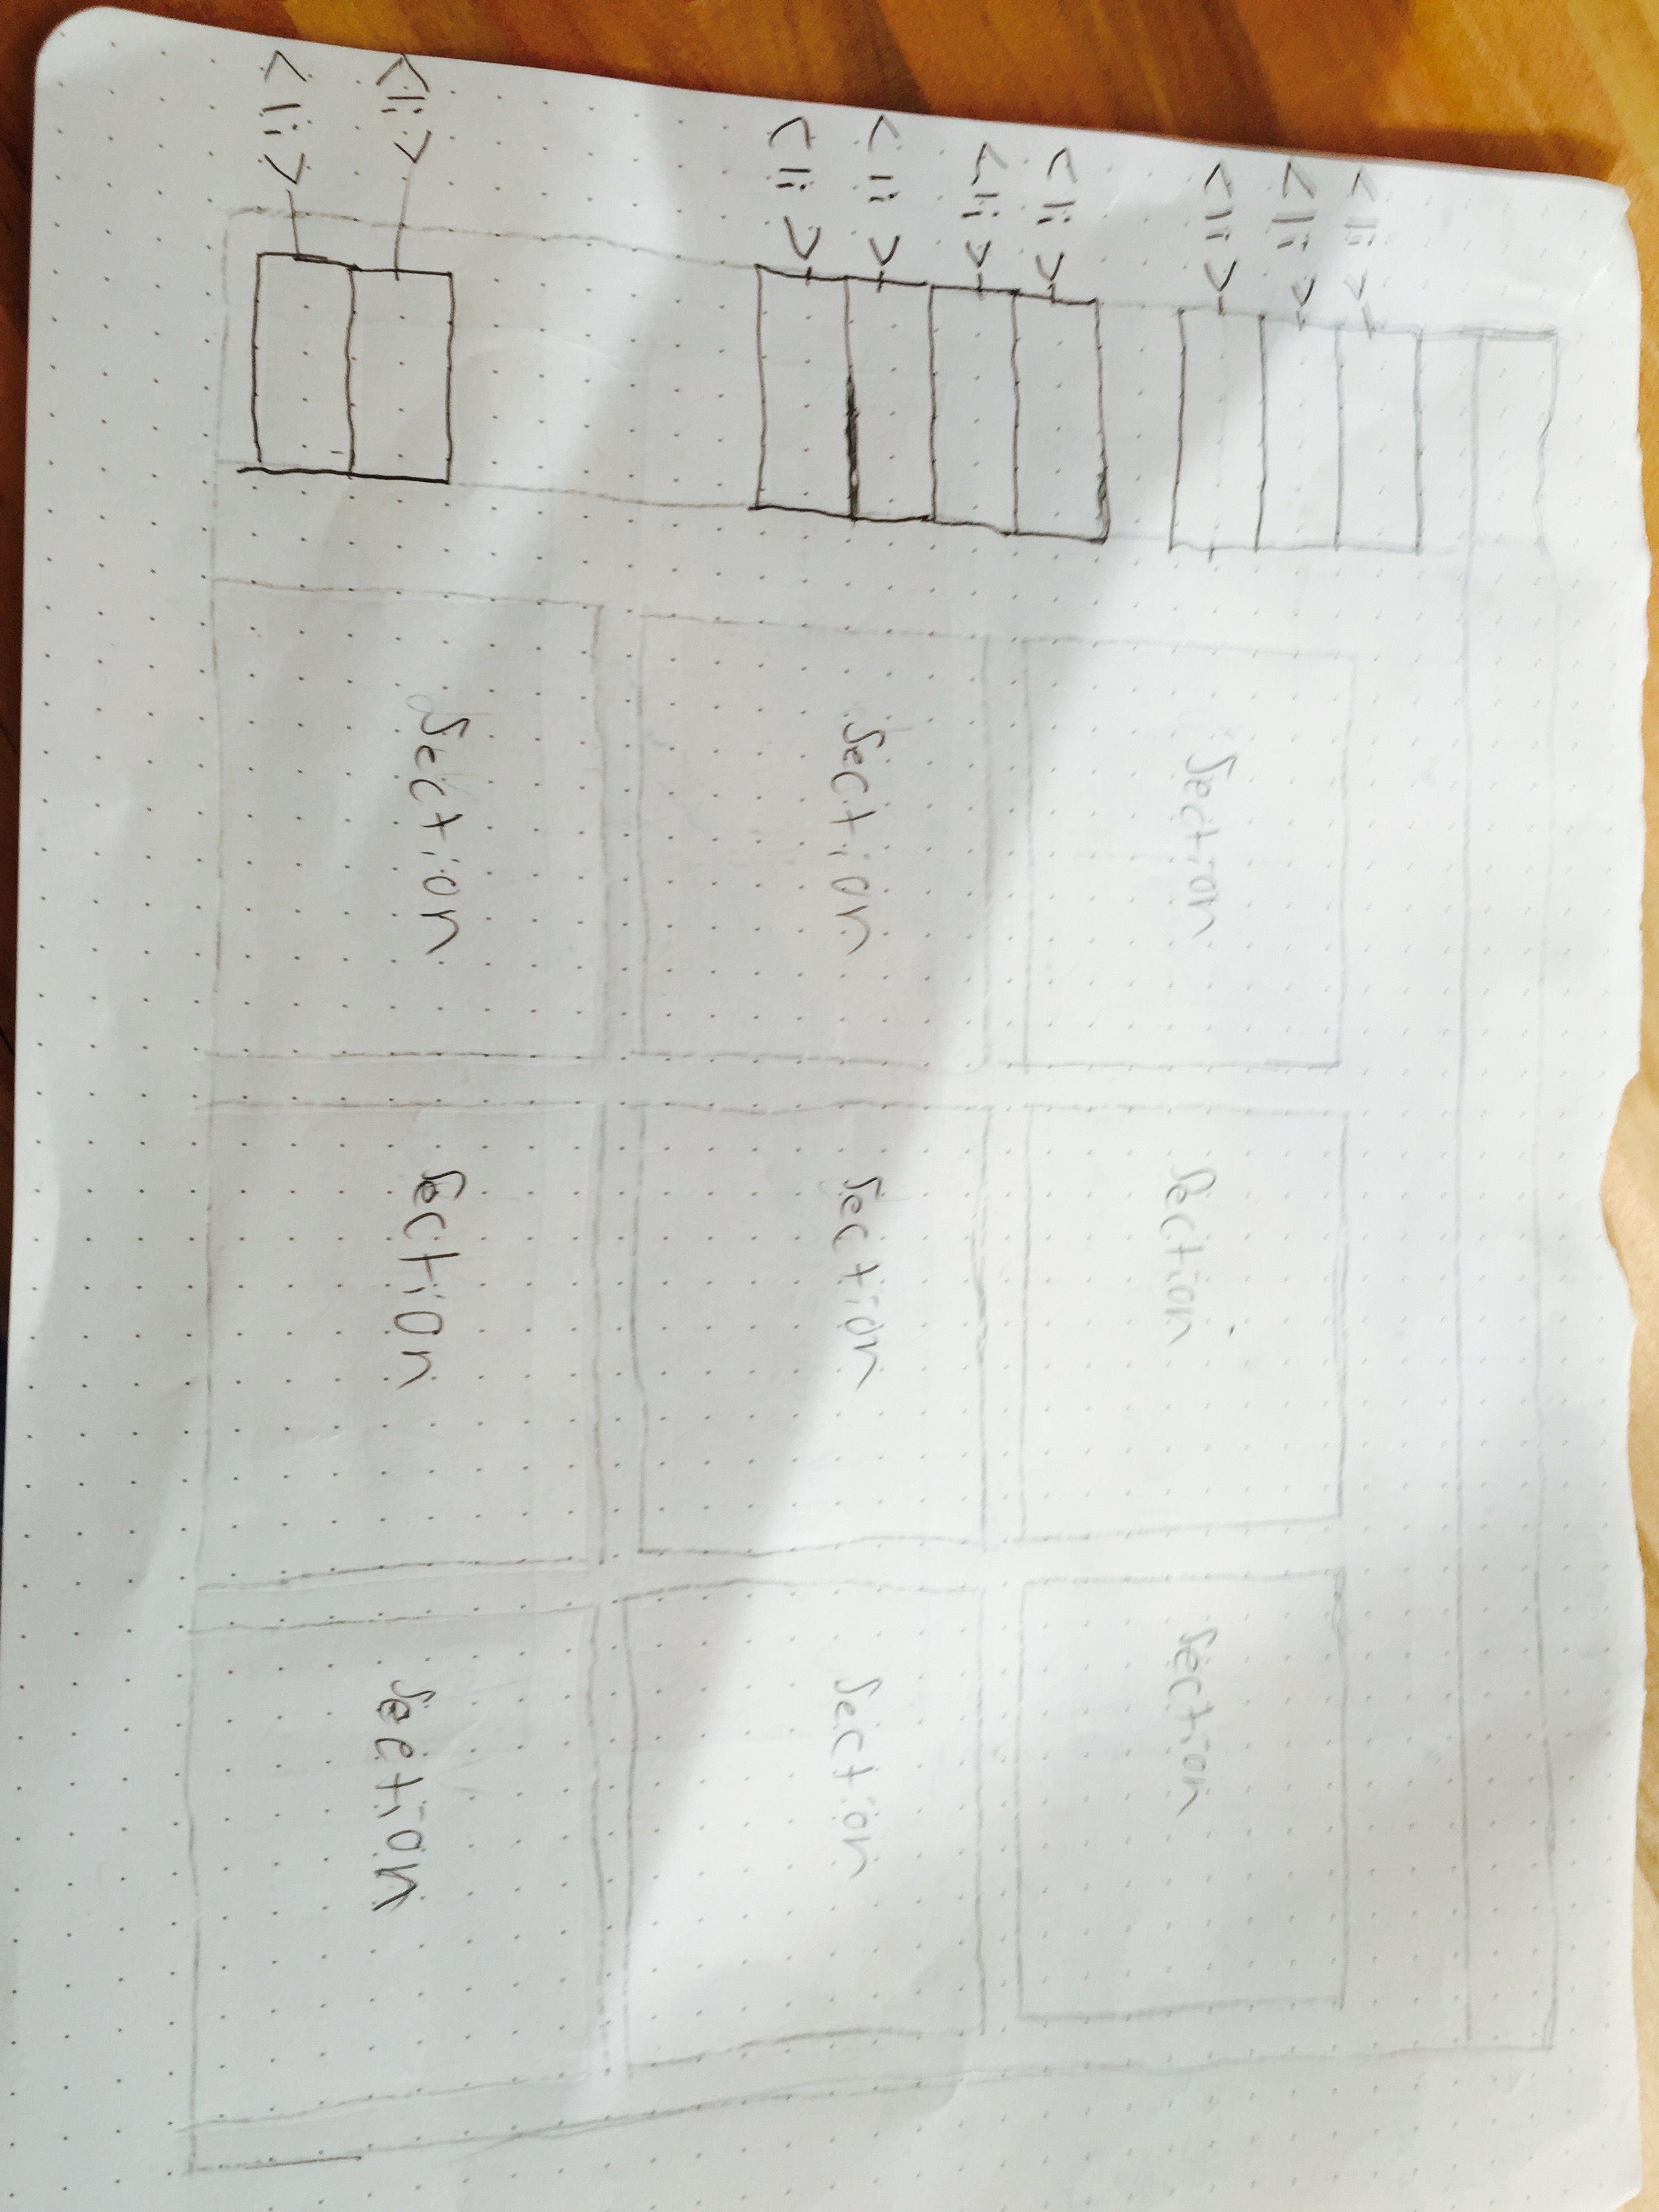 <li>
<li>
<li>
<li>
<li>
<li>
<li>
<li>
<li>
Section Section Section
Section Section Section
Section Section Section